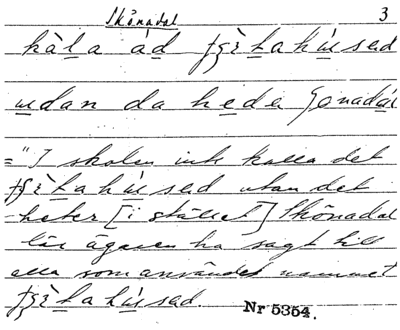 Skônadal 3
kàl̲a ád̲ fʒè̲t̲ak̲ú̲s̲sad
u̲dan da he̲dà ʃonadál
= "I skolen inte kalla det
fʒè̲t̲ak̲ú̲s̲sad utan det
heter [i stället] Skônadal
lär ägaren ha sagt till
alla som användes namnet
fʒè̲t̲ak̲ú̲s̲sad.
Nr 5354.